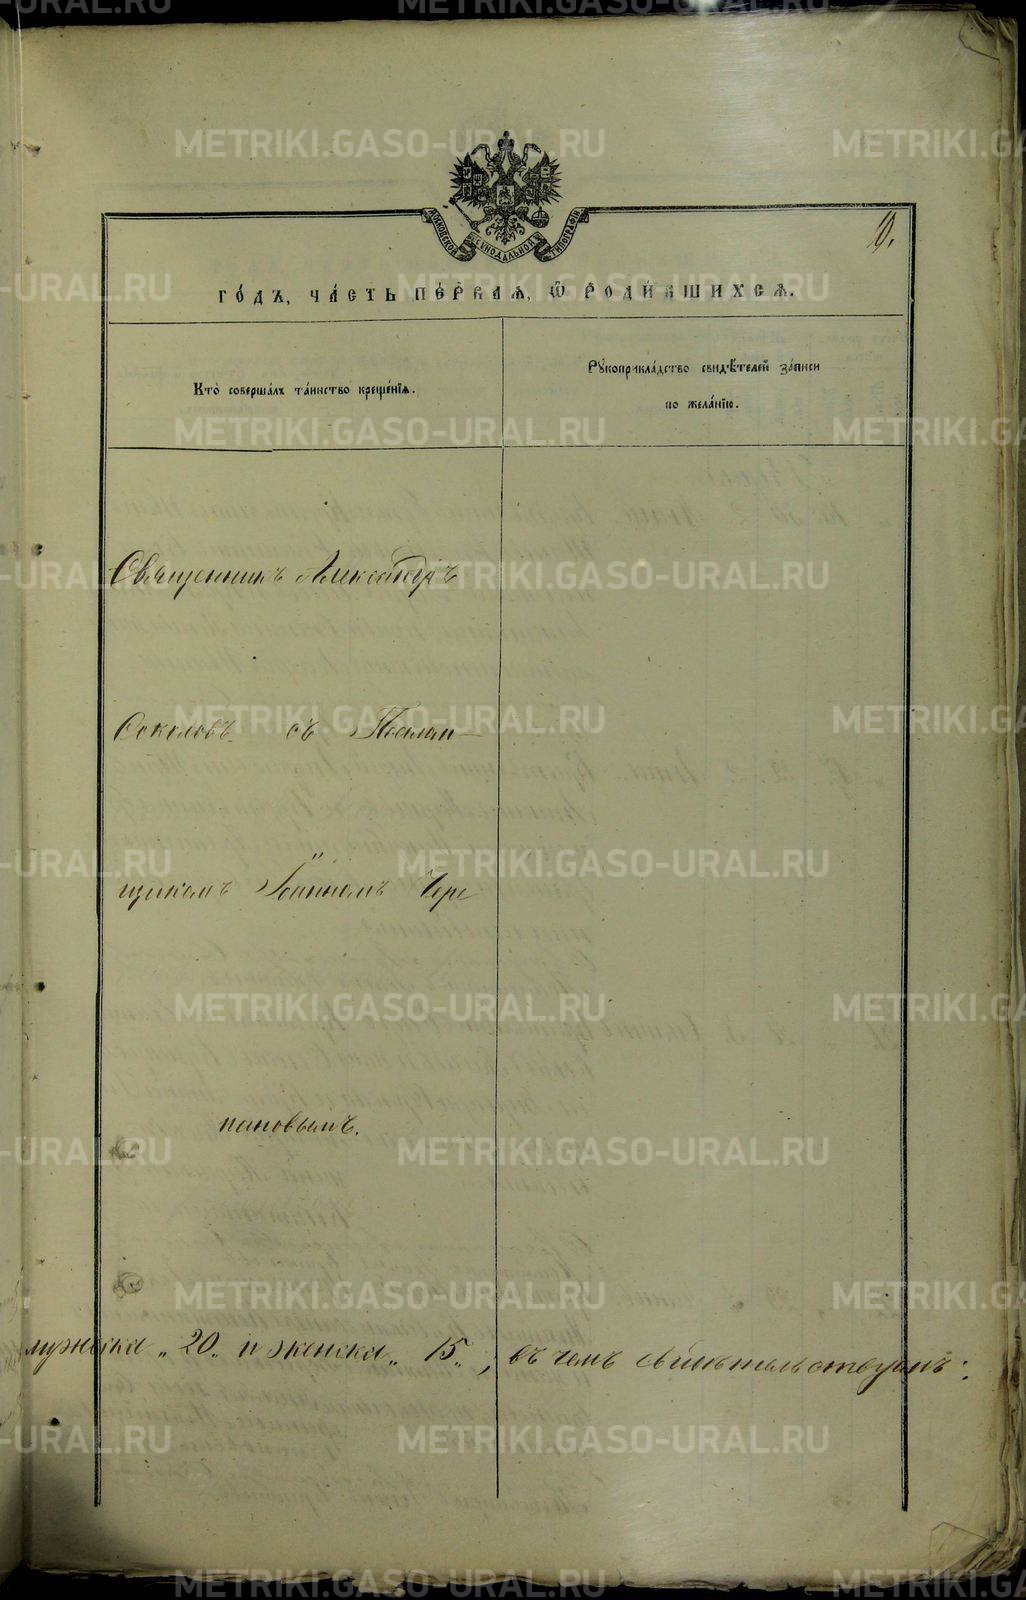 МОСКОВСКОЙ СѴНОДАЛЬНОЙ ТИПОГРАФІИ
9.
ГО́ДЪ, ЧА́СТЬ ПЕ́РВАѦ, Ѿ РОДИ́ВШИХСѦ.
Кто̀ соверша́лъ та́инство креще́нїѧ.
Рꙋкоприкла́дство свидѣ́телей за́писи
по жела́нїю.
Священникъ Александръ
Соколовъ съ Псалом-
щикомъ Іоанномъ Чере
пановымъ.
мужеска „20„ и женска „15„, въ чемъ свидѣтельствуемъ:
METRIKI.GASO-URAL.RU